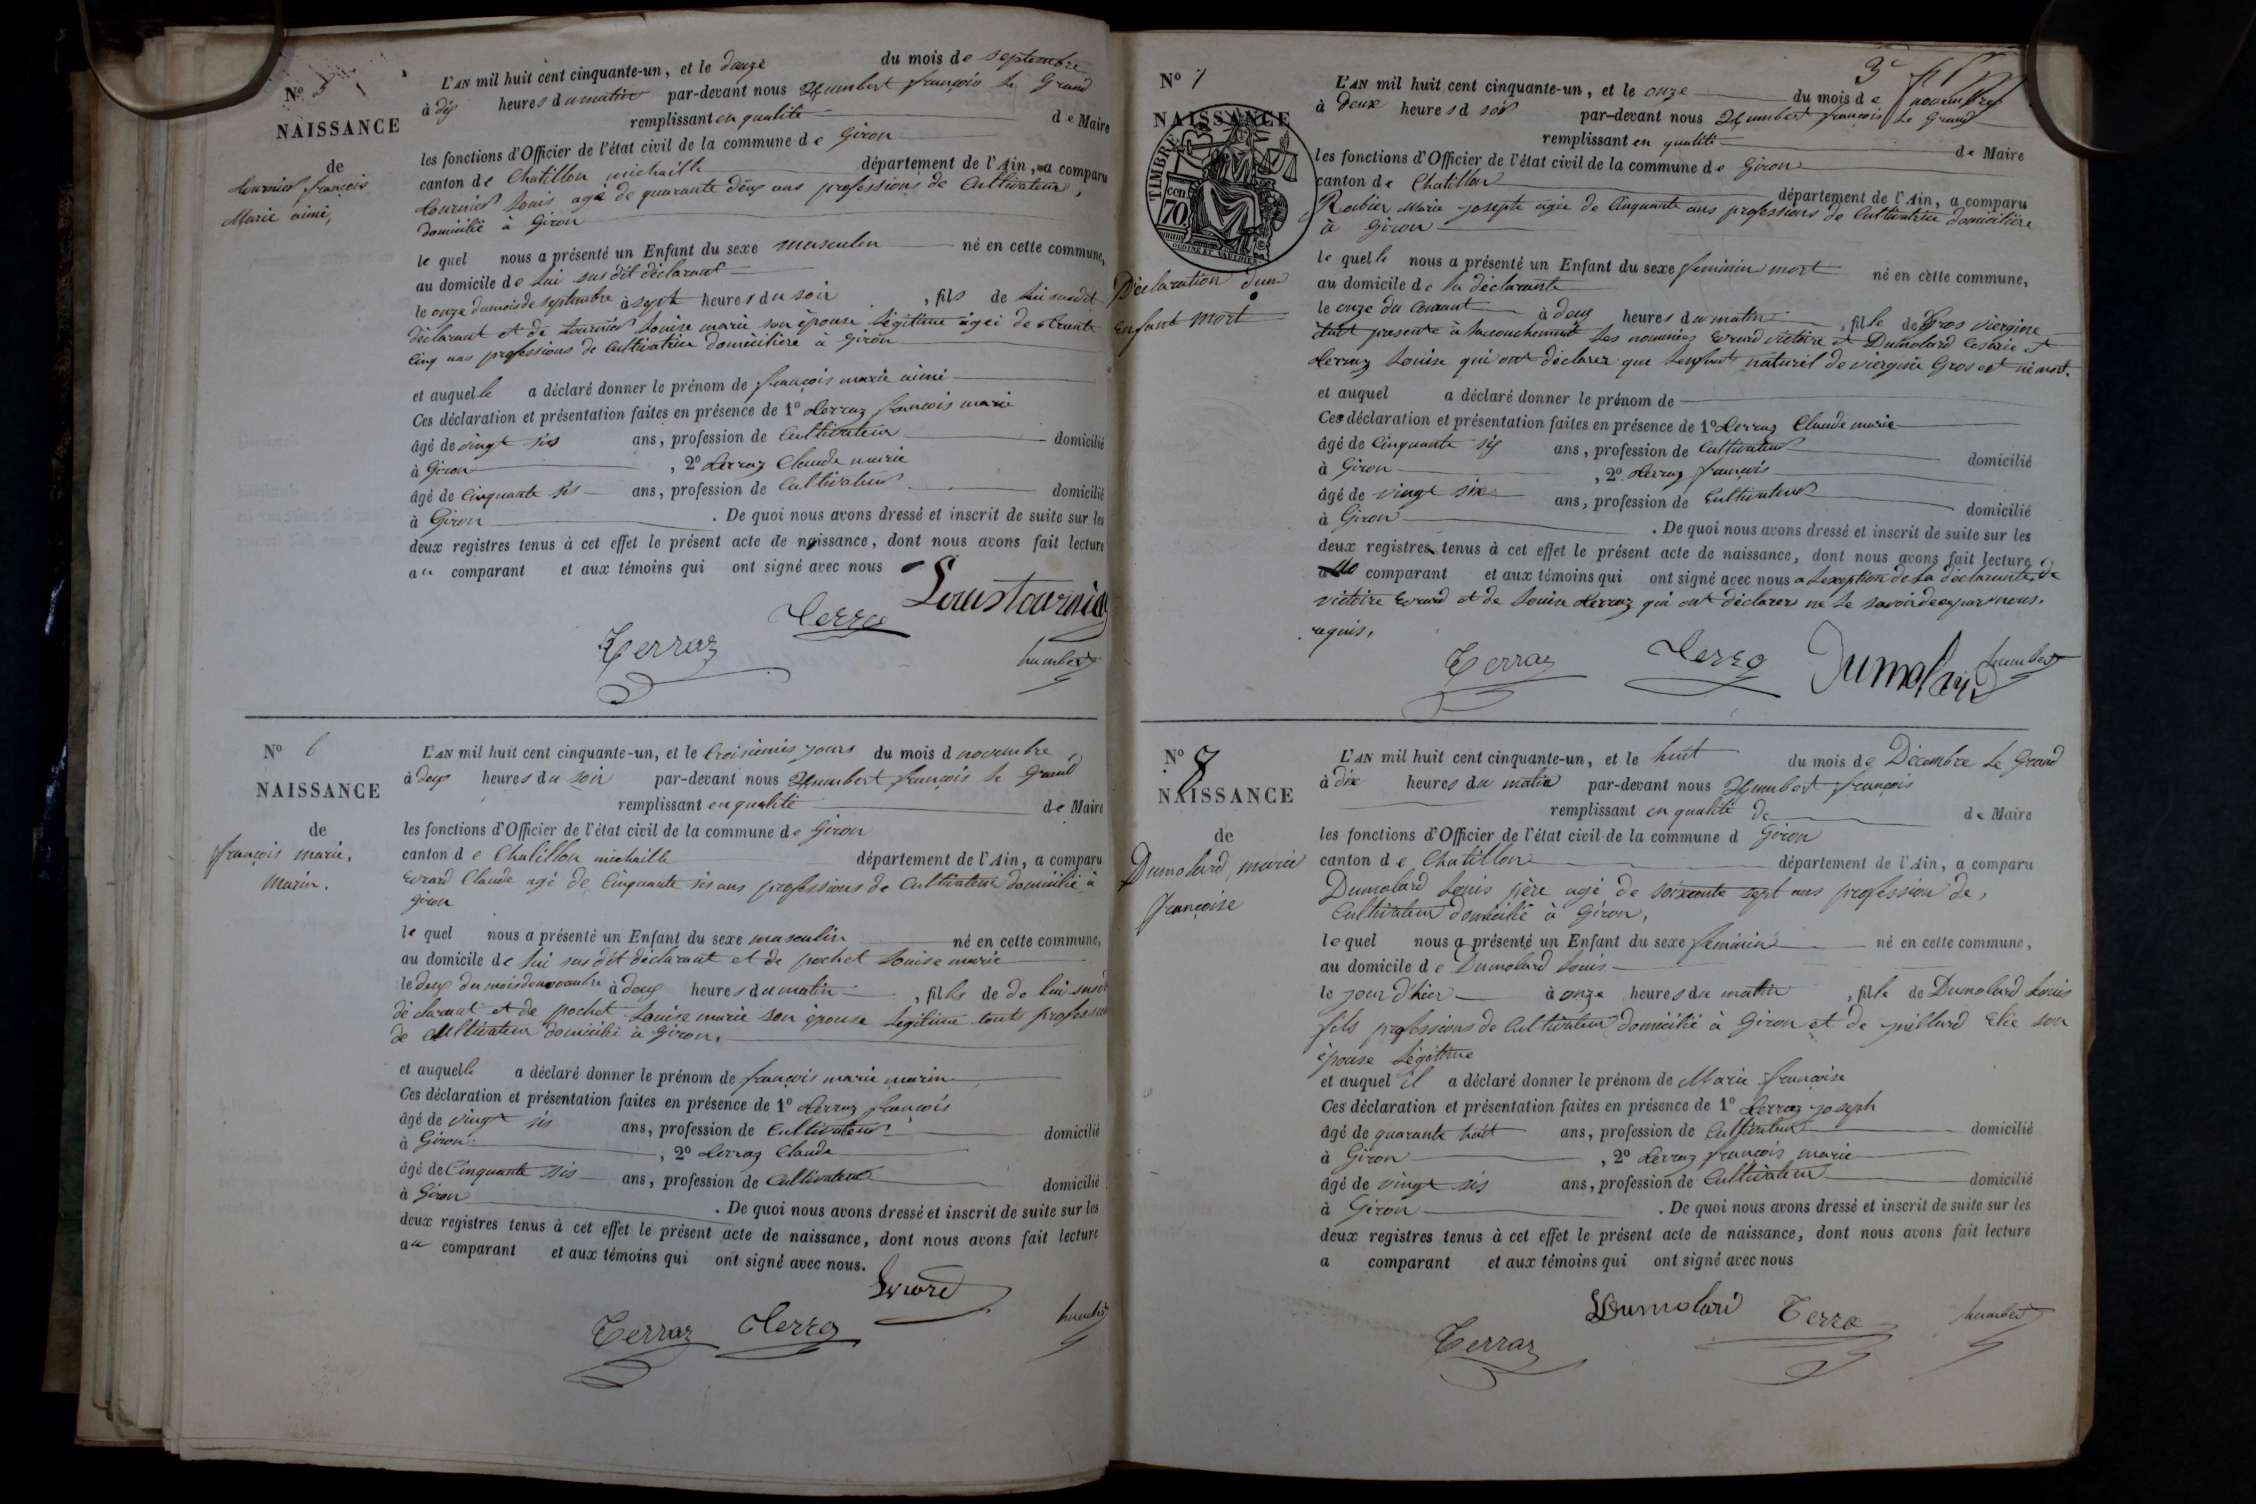 N° 5
NAISSANCE
de
tournier françois
Marie aimé,
L'AN mil huit cent cinquante-un, et le douze du mois de septembre
à dix heures du matin par-devant nous humbert françois le Grand
remplissant en qualité de Maire
les fonctions d'Officier de l'état civil de la commune de Giron
canton de Chatillon michaille département de l'Ain, a comparu
tournier Louis agé de quarante deux ans professions de Cultivateur,
domicilié à Giron
le quel nous a présenté un Enfant du sexe masculin né en cette commune,
au domicile de lui sus dit déclarant
le onze du mois de septembre à sept heures du soir, fils de lui susdit
déclarant et de tournier Louise marie son épouse légitime agée de trente
cinq ans professions de Cultivateur domiciliere a Giron
et auquel le a déclaré donner le prénom de françois marie aimé
Ces déclaration et présentation faites en présence de 1° terraz françois marie
âgé de vingt sis ans, profession de Cultivateur domicilié
à Giron, 2° terraz Claude marie
âgé de Cinquante sis ans, profession de Cultivateur domicilié
à Giron. De quoi nous avons dressé et inscrit de suite sur les
deux registres tenus à cet effet le présent acte de naissance, dont nous avons fait lecture
au comparant et aux témoins qui ont signé avec nous
Louis Tournier
terra
Terraz
humbert
N° 6
NAISSANCE
de
françois marie,
marin.
L'AN mil huit cent cinquante-un, et le troisiemes jours du mois d novembre
à deux heures du soir par-devant nous humbert françois le Grand
remplissant en qualité de Maire
les fonctions d'Officier de l'état civil de la commune de Giron
canton de Chatillon michaille département de l'Ain, a comparu
Evrard Claude agé de Cinquante sis ans professions de Cultivateur domicilié à
Giron
le quel nous a présenté un Enfant du sexe masculin né en cette commune,
au domicile de lui sus dit déclarant et de pochet Louise marie
le deux du mois de novembre à deux heures du matin, fils de de lui susdit
déclarant et de pochet Louise marie son épouse légitime tout profession
de Cultivateur domicilié a Giron.
et auquel le a déclaré donner le prénom de françois marie marin
Ces déclaration et présentation faites en présence de 1° terraz françois
âgé de vingt sis ans, profession de Cultivateur domicilié
à Giron, 2° terraz Claude
âgé de Cinquante sis ans, profession de Cultivateur domicilié
à Giron. De quoi nous avons dressé et inscrit de suite sur les
deux registres tenus à cet effet le présent acte de naissance, dont nous avons fait lecture
au comparant et aux témoins qui ont signé avec nous.
Evrard
Terraz terra humbert
3e
N° 7
NAISSANCE
TIMBRE
70
Déclaration d'un
enfant mort
L'AN mil huit cent cinquante-un, et le onze du mois de novembre
à deux heures d soir par-devant nous humbert françois le Grand
remplissant en qualité de Maire
les fonctions d'Officier de l'état civil de la commune de Giron
canton de Chatillon département de l'Ain, a comparu
Robier Marie josepte agée de Cinquante ans professions de Cultivatrice domiciliére
à Giron
le quel le nous a présenté un Enfant du sexe feminin mort né en cette commune,
au domicile de la déclarante
le onze du Courant à deux heures du matin, fille de Gros viergine
était presente à laccouchement les nominées Evrard victoire et Dumolard Cesarie et
terraz Louise qui ont déclarer que lenfant naturel de viergine Gros est né mort.
et auquel a déclaré donner le prénom de
Ces déclaration et présentation faites en présence de 1° terraz Claude marie
âgé de Cinquante sis ans, profession de Cultivateur domicilié
à Giron, 2° terraz françois
âgé de vingt six ans, profession de Cultivateur domicilié
à Giron. De quoi nous avons dressé et inscrit de suite sur les
deux registres tenus à cet effet le présent acte de naissance, dont nous avons fait lecture
comparant et aux témoins qui ont signé avec nous a lexception de la déclarante, de
victoire Evrard et de Louise terraz qui ont déclarer ne le savoir de ce par nous
requis.
Terraz terra Dumolard humbert
N° 8
NAISSANCE
de
Dumolard, marie
françoise
L'AN mil huit cent cinquante-un, et le huit du mois de Décembre le Grand
à dix heures du matin par-devant nous humbert françois
remplissant en qualité de de Maire
les fonctions d'Officier de l'état civil de la commune d Giron
canton de Chatillon département de l'Ain, a comparu
Dumolard Louis père agé de soixante sept ans profession de,
Cultivateur domicilié à Giron,
le quel nous a présenté un Enfant du sexe feminin né en cette commune,
au domicile de Dumolard Louis
le jour d'hier à onze heures du matin, fille de Dumolard Louis
fils professions de Cultivateur domicilié à Giron et de juillard Elie son
épouse légitime
et auquel il a déclaré donner le prénom de Marie françoise
Ces déclaration et présentation faites en présence de 1° terraz joseph
âgé de quarante huit ans, profession de Cultivateur domicilié
à Giron, 2° terraz françois marie
âgé de vingt sis ans, profession de Cultivateur domicilié
à Giron. De quoi nous avons dressé et inscrit de suite sur les
deux registres tenus à cet effet le présent acte de naissance, dont nous avons fait lecture
a comparant et aux témoins qui ont signé avec nous
Dumolard Terra humbert
Terraz